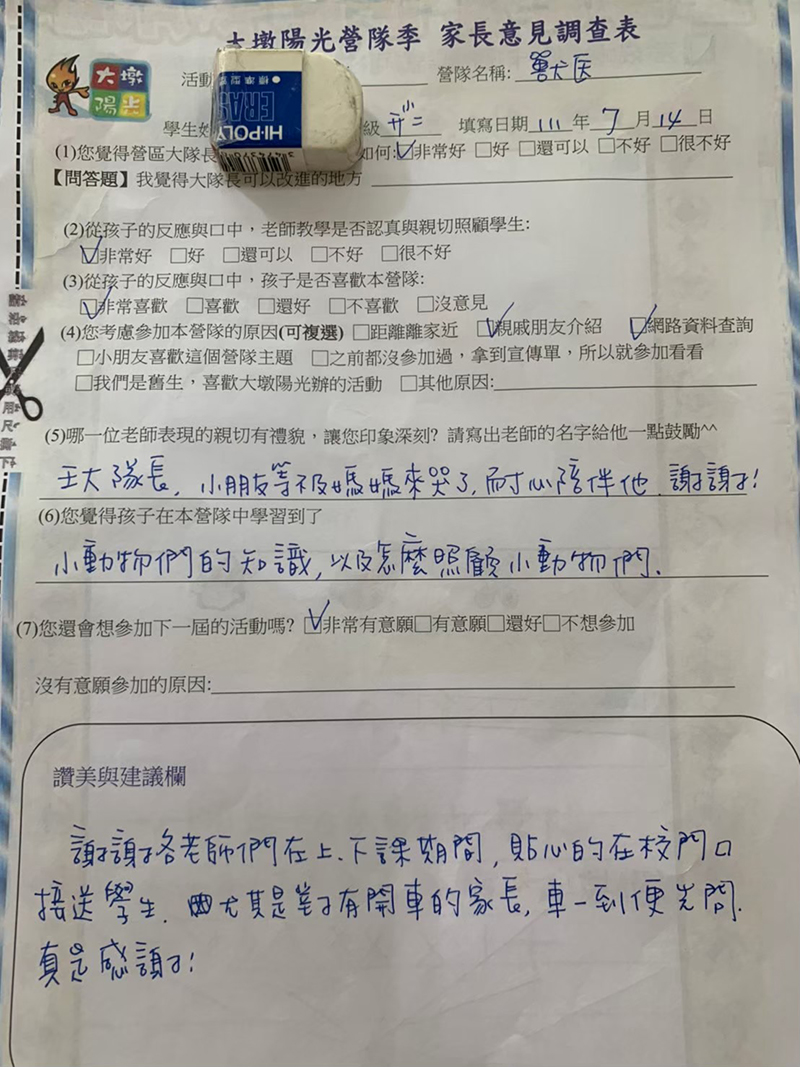 大墩陽光營隊季 家長意見調查表
大墩
陽光
活動 營隊名稱: 獸医
學生姓 級 升小二 填寫日期 111 年 7 月 14 日
(1)您覺得營區大隊長 如何:☑非常好 □好 □還可以 □不好 □很不好
【問答題】我覺得大隊長可以改進的地方
(2)從孩子的反應與口中，老師教學是否認真與親切照顧學生:
☑非常好 □好 □還可以 □不好 □很不好
(3)從孩子的反應與口中，孩子是否喜歡本營隊:
☑非常喜歡 □喜歡 □還好 □不喜歡 □沒意見
(4)您考慮參加本營隊的原因(可複選) □距離離家近 ☑親戚朋友介紹 ☑網路資料查詢
□小朋友喜歡這個營隊主題 □之前都沒參加過，拿到宣傳單，所以就參加看看
□我們是舊生，喜歡大墩陽光辦的活動 □其他原因:
(5)哪一位老師表現的親切有禮貌，讓您印象深刻? 請寫出老師的名字給他一點鼓勵^^
王大隊長，小朋友等不及媽媽來哭了，耐心陪伴他，謝謝!
(6)您覺得孩子在本營隊中學習到了
小動物們的知識，以及怎麼照顧小動物們.
(7)您還會想參加下一屆的活動嗎? ☑非常有意願□有意願□還好□不想參加
沒有意願參加的原因:
讚美與建議欄
謝謝各老師們在上、下課期間，貼心的在校門口
接送學生. 尤其是對有開車的家長，車一到便先問.
真是感謝!
HI-POLY
ERAS
標準型